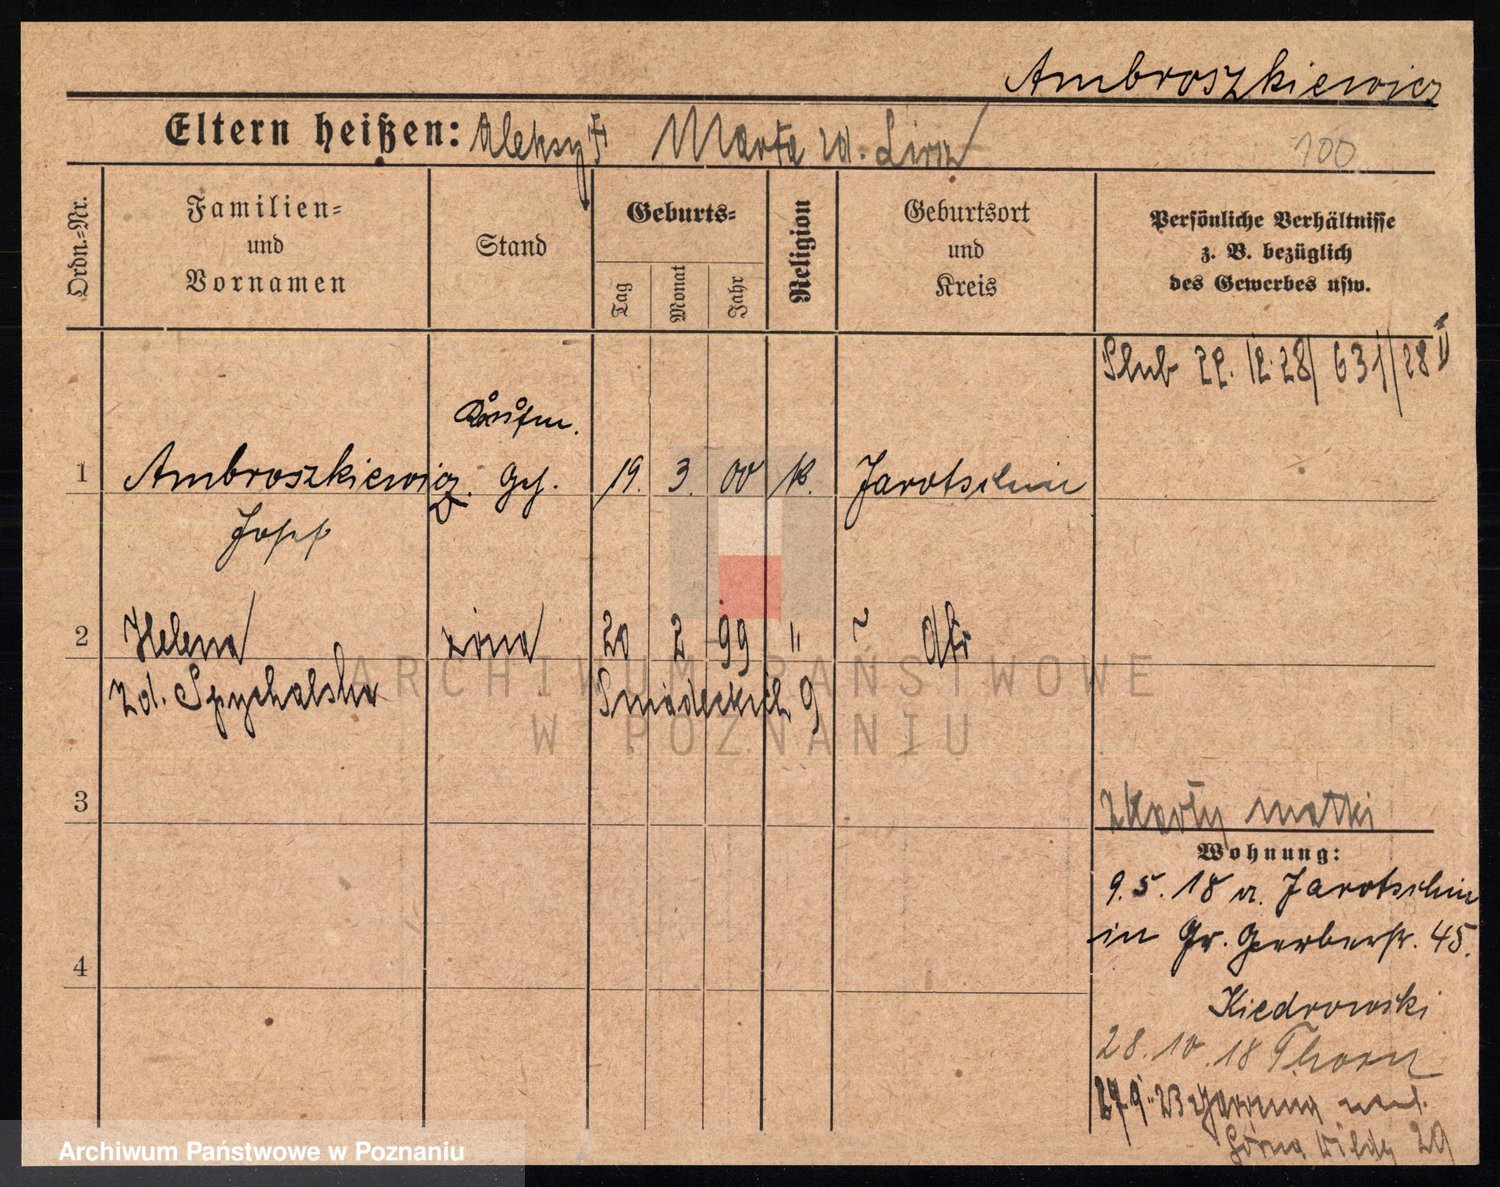 Ambroszkiewicz
Eltern heißen: Aleksy Marta zd.
100
Ordn.=Nr.
Familien=
und
Vornamen
Stand
Geburts=
Tag
Monat
Jahr
Religion
Geburtsort
und
Kreis
Persönliche Verhältnisse
z. B. bezüglich
des Gewerbes usw.
Ślub 22. 12. 28/ 631/28 II
Kaufm.
1 Ambroszkiewicz Geh. 19. 3. 00 k. Jarotschin
Josef
2 Helena żona 20 2 99 "
zd. Spychalska Śniadeckich 9
3
z Karty matki
Wohnung:
9. 5. 18 v. Jarotschin
in Gr. Gerberstr. 45.
4
Kiedrowski
28. 10. 18 Thorn
27 9. 23
Górna Wilda 29
ARCHIWUM PAŃSTWOWE
W POZNANIU
Archiwum Państwowe w Poznaniu